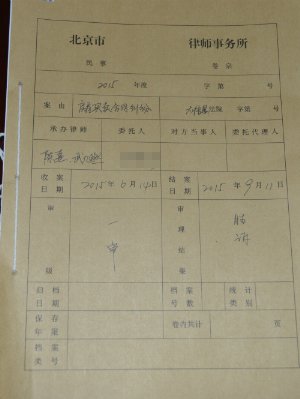 北京市 律师事务所
民事 卷宗
2015 年度 字第 号
案由 法院 字第 号
承办律师 委托人 对方当事人 委托代理人
收案日期 2015年6月14日 结案日期 2015年9月11日
审级 一审 审理结果 胜诉
归档日期 档案号数 统计类别
保存年限 卷内共计 页
档案类号